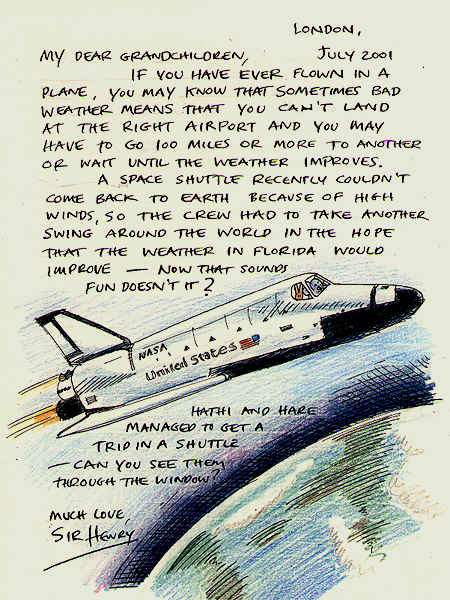 LONDON,
MY DEAR GRANDCHILDREN, JULY 2001
IF YOU HAVE EVER FLOWN IN A
PLANE, YOU MAY KNOW THAT SOMETIMES BAD
WEATHER MEANS THAT YOU CAN'T LAND
AT THE RIGHT AIRPORT AND YOU MAY
HAVE TO GO 100 MILES OR MORE TO ANOTHER
OR WAIT UNTIL THE WEATHER IMPROVES.
A SPACE SHUTTLE RECENTLY COULDN'T
COME BACK TO EARTH BECAUSE OF HIGH
WINDS, SO THE CREW HAD TO TAKE ANOTHER
SWING AROUND THE WORLD IN THE HOPE
THAT THE WEATHER IN FLORIDA WOULD
IMPROVE — NOW THAT SOUNDS
FUN DOESN'T IT?
NASA
United States
HATHI AND HARE
MANAGED TO GET A
TRIP IN A SHUTTLE
— CAN YOU SEE THEM
THROUGH THE WINDOW?
MUCH LOVE,
SIR HENRY